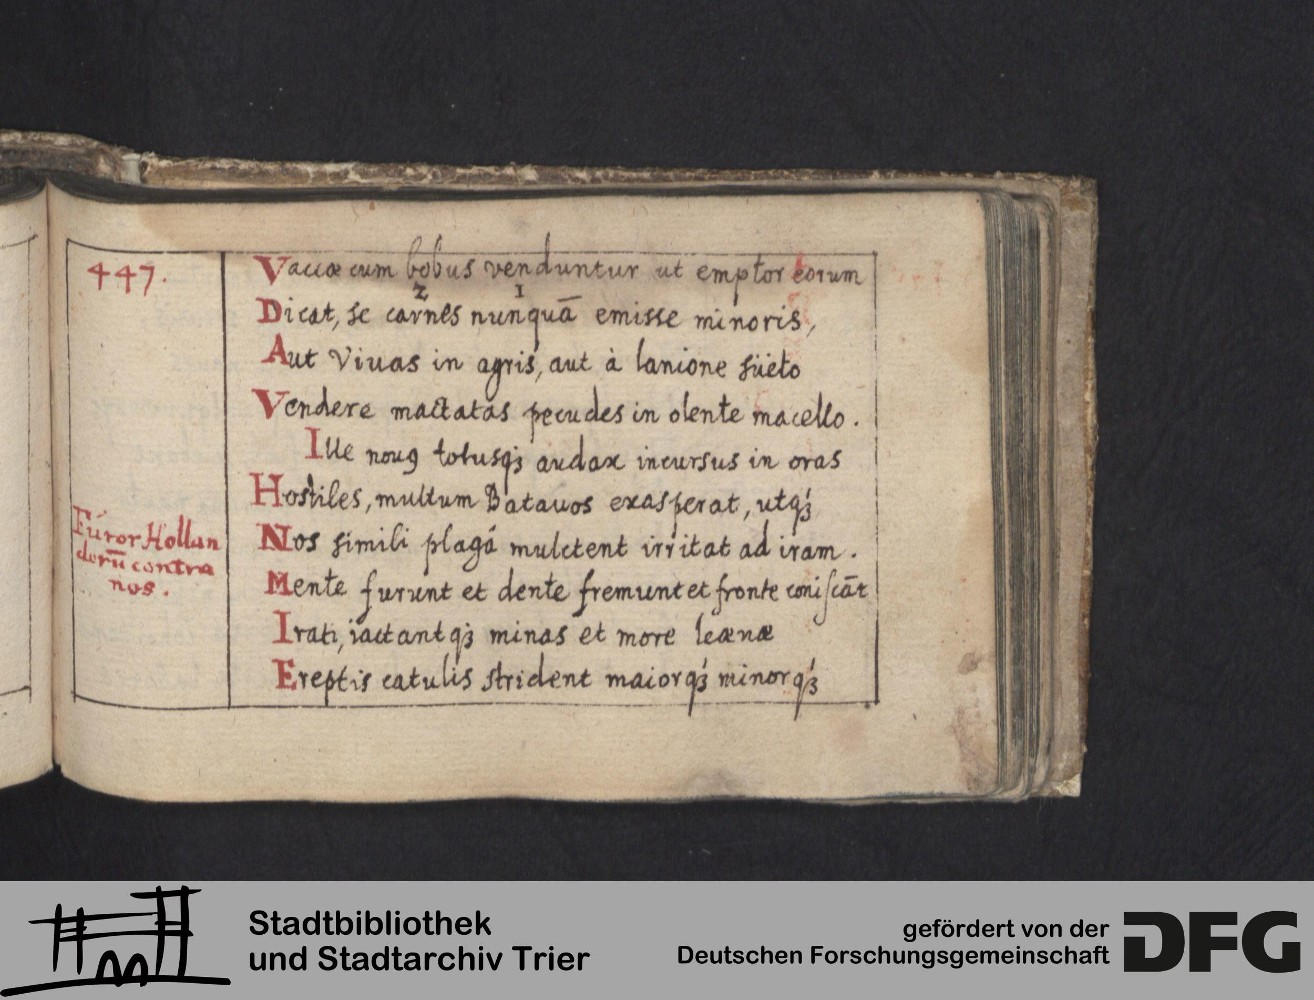 447.
Vaccæ cum bobus venduntur ut emptor eorum
2 1
Dicat, se carnes nunquā emisse minoris,
Aut Viuas in agris, aut à lanione süeto
Vendere mactatas pecudes in olente macello.
Ille nouꝯ totusqꝫ audax incursus in oras
Hostiles, multum Batauos exasperat, utqꝫ
Nos simili plagâ mulctent irritat ad iram.
Mente furunt et dente fremunt et fronte coniscāt
Irati, iactantqꝫ minas et more leænæ
Ereptis catulis strident maiorqꝫ minorqꝫ
Furor Hollan
dorū contra
nos.
Stadtbibliothek
und Stadtarchiv Trier
gefördert von der
Deutschen Forschungsgemeinschaft
DFG